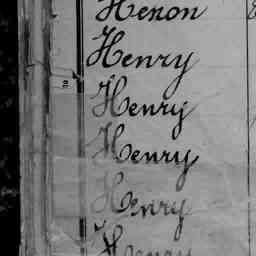 Henon
Henry
Henry
Henry
Henry
Henry